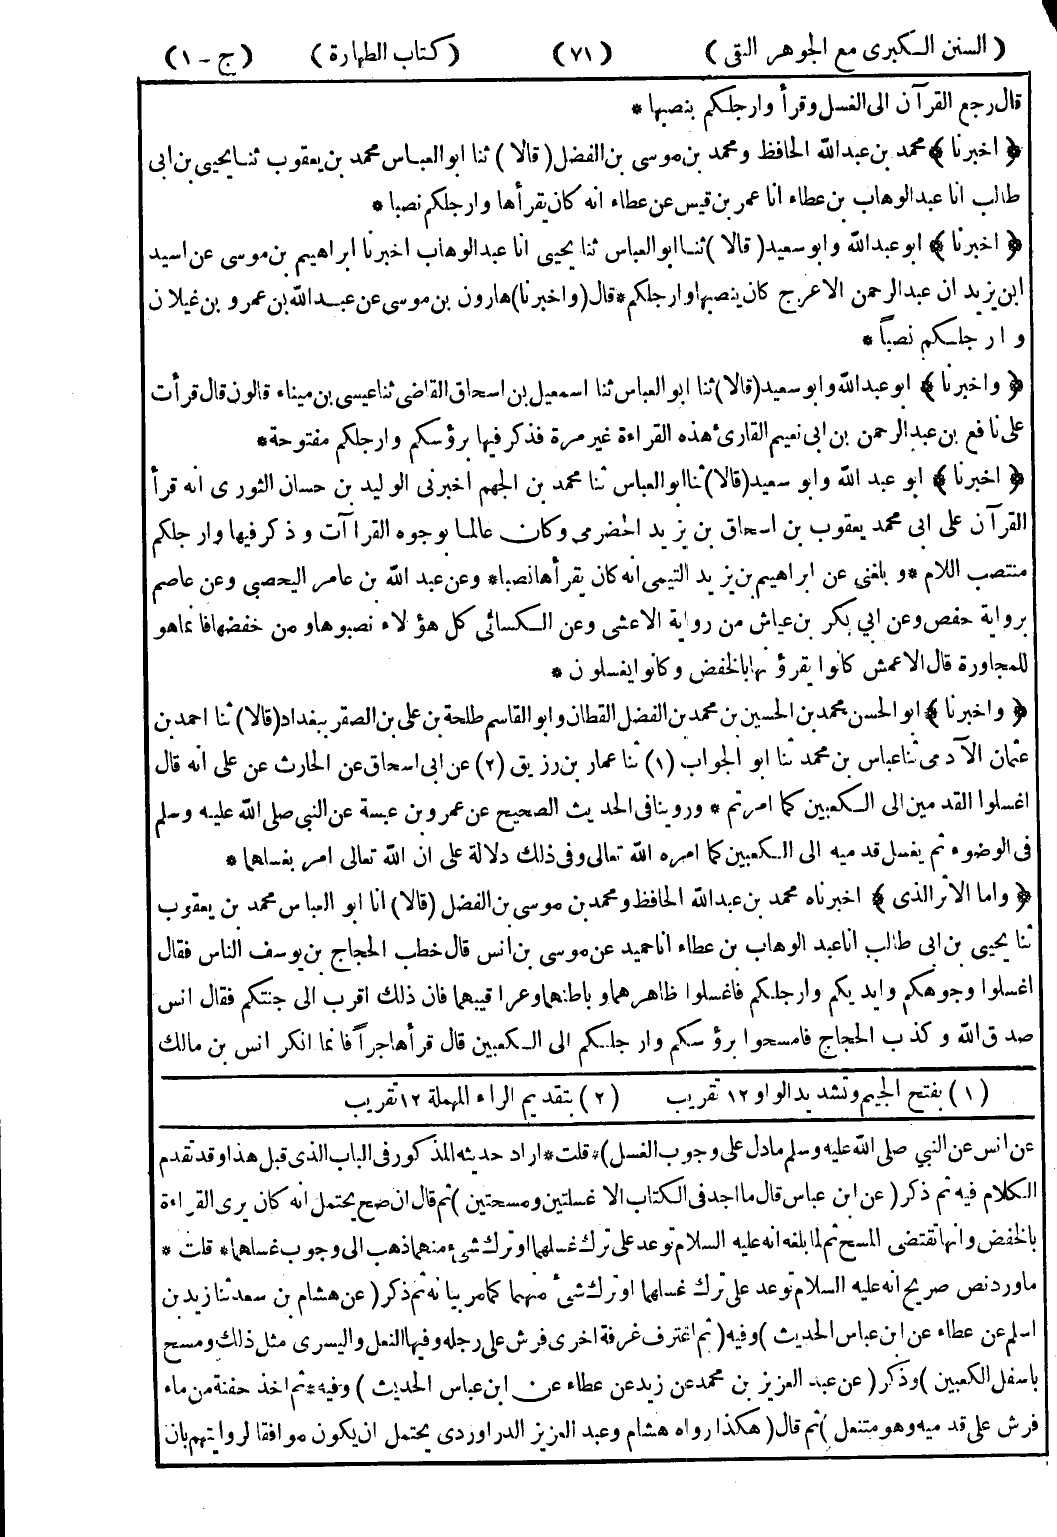 ( السنن الكبرى مع الجوهر النقى ) ( ٧١ ) ( كتاب الطهارة ) ( ج - ١ )
قال رجع القرآن الى الغسل وقرأ وارجلكم بنصبها *
﴿ اخبرنا ﴾ محمد بن عبدالله الحافظ ومحمد بن موسى بن الفضل ( قالا ) ثنا ابو العباس محمد بن يعقوب ثنا يحيى بن ابى
طالب انا عبد الوهاب بن عطاء انا عمر بن قيس عن عطاء انه كان يقرأها وارجلكم نصبا *
﴿ اخبرنا ﴾ ابو عبدالله وابو سعيد ( قالا ) ثنا ابو العباس ثنا يحيى انا عبدالوهاب اخبرنا ابراهيم بن موسى عن اسيد
ابن يزيد ان عبدالرحمن الاعرج كان ينصبها وارجلكم * قال ( واخبرنا ) هارون بن موسى عن عبد الله بن عمرو بن غيلان
وارجلكم نصباً *
﴿ واخبرنا ﴾ ابو عبدالله وابو سعيد ( قالا ) ثنا ابو العباس ثنا اسمعيل بن اسحاق القاضى ثنا عيسى بن ميناء قالون قال قرأت
على نافع بن عبدالرحمن بن ابى نعيم القارئ هذه القراءة غير مرة فذكر فيها برؤسكم وارجلكم مفتوحة *
﴿ اخبرنا ﴾ ابو عبد الله وابو سعيد ( قالا ) ثنا ابو العباس ثنا محمد بن الجهم اخبرنى الوليد بن حسان الثورى انه قرأ
القرآن على ابى محمد يعقوب بن اسحاق بن يزيد الحضرمى وكان عالما بوجوه القراآت وذكر فيها وارجلكم
منتصب اللام * وبلغنى عن ابراهيم بن يزيد التيمى انه كان يقرأها نصبا * وعن عبد الله بن عامر اليحصبى وعن عاصم
برواية حفص وعن ابي بكر بن عياش من رواية الاعشى وعن الكسائى كل هؤلاء نصبوها ومن خفضها فانما هو
للمجاورة قال الاعمش كانوا يقرؤنها بالخفض وكانوا يغسلون *
﴿ واخبرنا ﴾ ابو الحسن محمد بن الحسين بن محمد بن الفضل القطان وابو القاسم طلحة بن على بن الصقر ببغداد ( قالا ) ثنا احمد بن
عثمان الآدمى ثنا عباس بن محمد ثنا ابو الجواب (١) ثنا عمار بن رزيق (٢) عن ابى اسحاق عن الحارث عن على انه قال
اغسلوا القدمين الى الكعبين كما امرتم * وروينا فى الحديث الصحيح عن عمرو بن عبسة عن النبى صلى الله عليه وسلم
فى الوضوء ثم يغسل قدميه الى الكعبين كما امره الله تعالى وفى ذلك دلالة على ان الله تعالى امر بغسلها *
﴿ واما الاثر الذى ﴾ اخبرناه محمد بن عبدالله الحافظ ومحمد بن موسى بن الفضل ( قالا ) انا ابو العباس محمد بن يعقوب
ثنا يحيى بن ابى طالب انا عبد الوهاب بن عطاء انا حميد عن موسى بن انس قال خطب الحجاج بن يوسف الناس فقال
اغسلوا وجوهكم وايديكم وارجلكم فاغسلوا ظاهرهما وباطنهما وعراقيبهما فان ذلك اقرب الى جنتكم فقال انس
صدق الله وكذب الحجاج فامسحوا برؤسكم وارجلكم الى الكعبين قال قرأها جراً فانما انكر انس بن مالك
( ١ ) بفتح الجيم وتشديد الواو ١٢ تقريب ( ٢ ) بتقديم الراء المهملة ١٢ تقريب
عن انس عن النبي صلى الله عليه وسلم مادل على وجوب الغسل ) * قلت * اراد حديثه المذكور فى الباب الذى قبل هذا وقد تقدم
الكلام فيه ثم ذكر ( عن ابن عباس قال ما اجد فى الكتاب الا غسلتين ومسحتين ) ثم قال ان صح يحتمل انه كان يرى القراءة
بالخفض وانها تقتضى المسح ثم لما بلغه انه عليه السلام توعد على ترك غسلهما او ترك شئ منهما ذهب الى وجوب غسلها * قلت *
ما ورد نص صريح انه عليه السلام توعد على ترك غسلهما او ترك شئ منهما كما مر بيانه ثم ذكر ( عن هشام بن سعد ثنا زيد بن
اسلم عن عطاء عن ابن عباس الحديث ) وفيه ( ثم اغترف غرفة اخرى فرش على رجله وفيها النعل واليسرى مثل ذلك ومسح
باسفل الكعبين ) وذكر ( عن عبد العزيز بن محمد عن زيد عن عطاء عن ابن عباس الحديث ) وفيه * ثم اخذ حفنة من ماء
فرش على قدميه وهو متنعل ) ثم قال ( هكذا رواه هشام وعبد العزيز الدراوردى يحتمل ان يكون موافقا لروايتهم بان